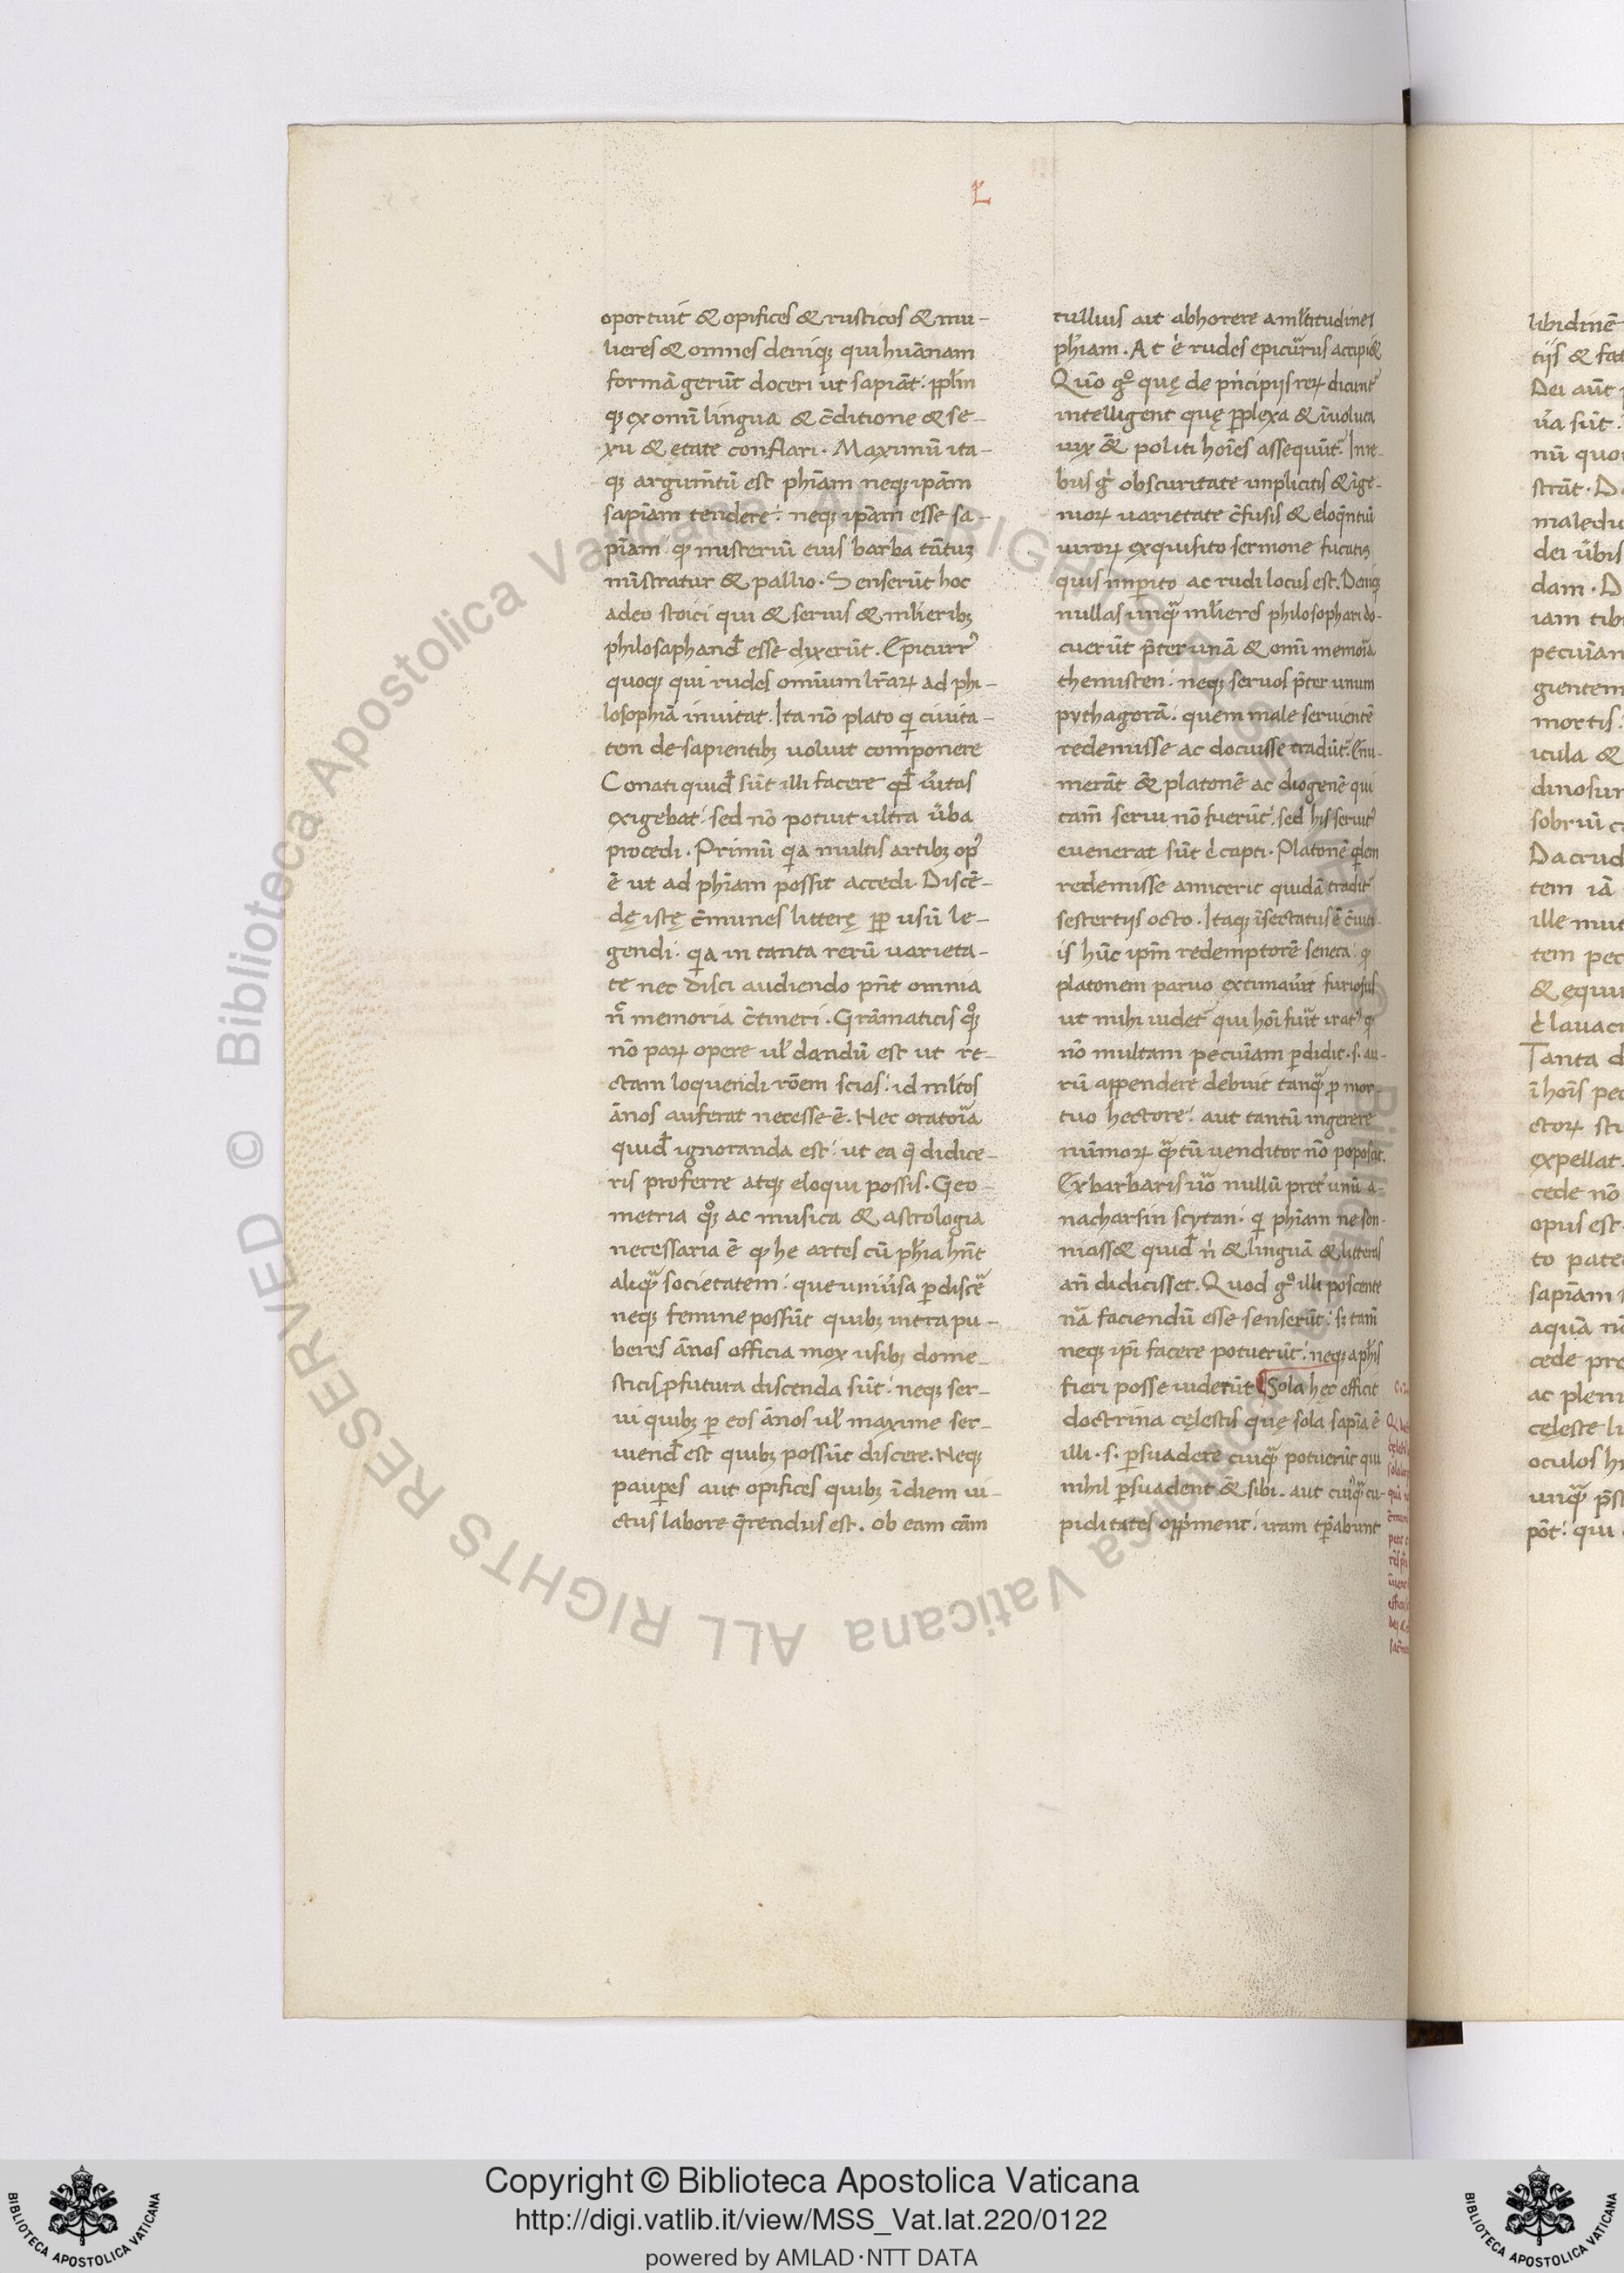 L
oportuit & opifices & rusticos & mu-
lieres & omnes deniq; qui huānam
formā gerūt doceri ut sapiāt: pplm̄
q; ex omī lingua & c̄ditione & se-
xu & ętate conflari. Maximū ita-
q; argum̄tū est phīam neq; ipām
sapīam tendere: neq; ipām esse sa-
pīam q; misteriū eius barba tātuꝫ
mīstratur & pallio. Senserūt hoc
adeo stoici qui & seruis & mlieribꝫ
philosaphand̄ esse dixerūt. Epicurr᾿
quoq; qui rudes omīum lr̄aꝝ ad phi-
losophiā inuitat. Ita nō plato qi ciuita-
tem de sapientibꝫ uoluit componere
Conati quid̄ sūt illi facere qd̄ ūitas
exigebat: sed nō potuit ultra ūba
procedi. Primū qia multis artibꝫ op᾿
ē ut ad phīam possit accedi. Discē-
dę istę c̄munes litterę pp usū le-
gendi. qia in tanta rerū uarieta-
te nec disci audiendo pn̄t omnia
n̄ memoria c̄tineri. Grāmaticis qo;
nō paꝝ opere ul̄ dandū est ut re-
ctam loquendi rōem scias: id mltos
ānos auferat necesse ē. Nec oratoīa
quid̄ ignoranda est: ut ea q̄ didice-
ris proferre atq; eloqui possis. Geo-
metria qo; ac musica & astrologia
necessaria ē q; he artes cū phīa hn̄t
aliqā societatem: que uniūsa pdiscē
neq; femine possūt quibꝫ intra pu-
beres ānos officia mox usibꝫ dome-
sticis pfutura discenda sūt: neq; ser-
ui quibꝫ p eos ānos ul̄ maxime ser-
uiend̄ est quibꝫ possūt discere. Neq;
paupes aut opifices quibꝫ ī diem ui-
ctus labore q̄rendus est. Ob eam cām
tullius ait abhorere a ml̄titudines
phīam. At ē rudes epicūrus accipi&
Quō go quę de pn̄cipijs reꝝ dicunt᾿
intelligent quę pplexa & īuoluta
uix & politi hoīes assequūt᾿. In re-
bus g obscuritate implicitis & īge-
nioꝝ uarietate c̄fusis & eloqn̄tiū
uiroꝝ exquisito sermone fucatis
quis impito ac rudi locus est. Deniq;
nullas unqā ml̄ieres philosophari do-
cuerūt p̄ter unā & omī memoīa
themisten. neq; seruos p̄ter unum
pythagorā: quem male seruientē
redemisse ac docuisse tradūt᾿. Enu-
merāt & platonē ac diogenē qui
tam̄ serui nō fuerūt: sed his seruit᾿
euenerat sūt ē capti. Platonē qdem
redemisse anniceric quidā tradit᾿
sestertijs octo. Itaq; īsectatus ē c̄uiti-
is hūc ipm̄ redemptorē seneca: q
platonem paruo extimaūit furiosus
ut mihi uidet᾿ qui hoī fuit irat᾿ q
nō multam pecuīam pdidit. s. au-
rū appendere debuit tanqā p mor-
tuo hectore: aut tantū ingerere
nūmoꝝ qātū uenditor nō poposcit.
Ex barbaris ūo nullū pret᾿ unū a-
nacharsin scytan. qi phīam ne som-
niass& quid̄ n̄ & linguā & litteras
an̄ didicisset. Quod go illi poscente
nā faciendū esse senserūt: sꝫ tam̄
neq; ipi facere potuerūt: neq; a phīs
fieri posse uiderūt ¶ Sola hęc efficit
doctrina cęlestis quę sola sapīa ē
illi. s. psuadere cuiqā potuerūt qui
nihil psuadent & sibi. aut cuiqā cu-
piditates oppiment: iram tpabunt
libidinē
tijs &
Dei aūt
ūa sūt.
nū quo
strāt. D
dei ūbis
dam. D
iam tib
pecuīam
gientem
mortis:
icula &
dinosum
sobriū c
Da crud
tem iā
ille mut
tem pec
& ęqui
Tanta d
ī hoīs pec
ctoꝝ
expellat.
cede nō
opus est
to pate
sapīam
aquā nō
cede pre
ac pleni
cęleste
oculos
unqā
pōt: qui
© Biblioteca Apostolica Vaticana ALL RIGHTS RESERVED
© Biblioteca Apostolica Vaticana ALL RIGHTS RESERVED
Copyright © Biblioteca Apostolica Vaticana
http://digi.vatlib.it/view/MSS_Vat.lat.220/0122
powered by AMLAD·NTT DATA
BIBLIOTECA APOSTOLICA VATICANA
BIBLIOTECA APOSTOLICA VATICANA